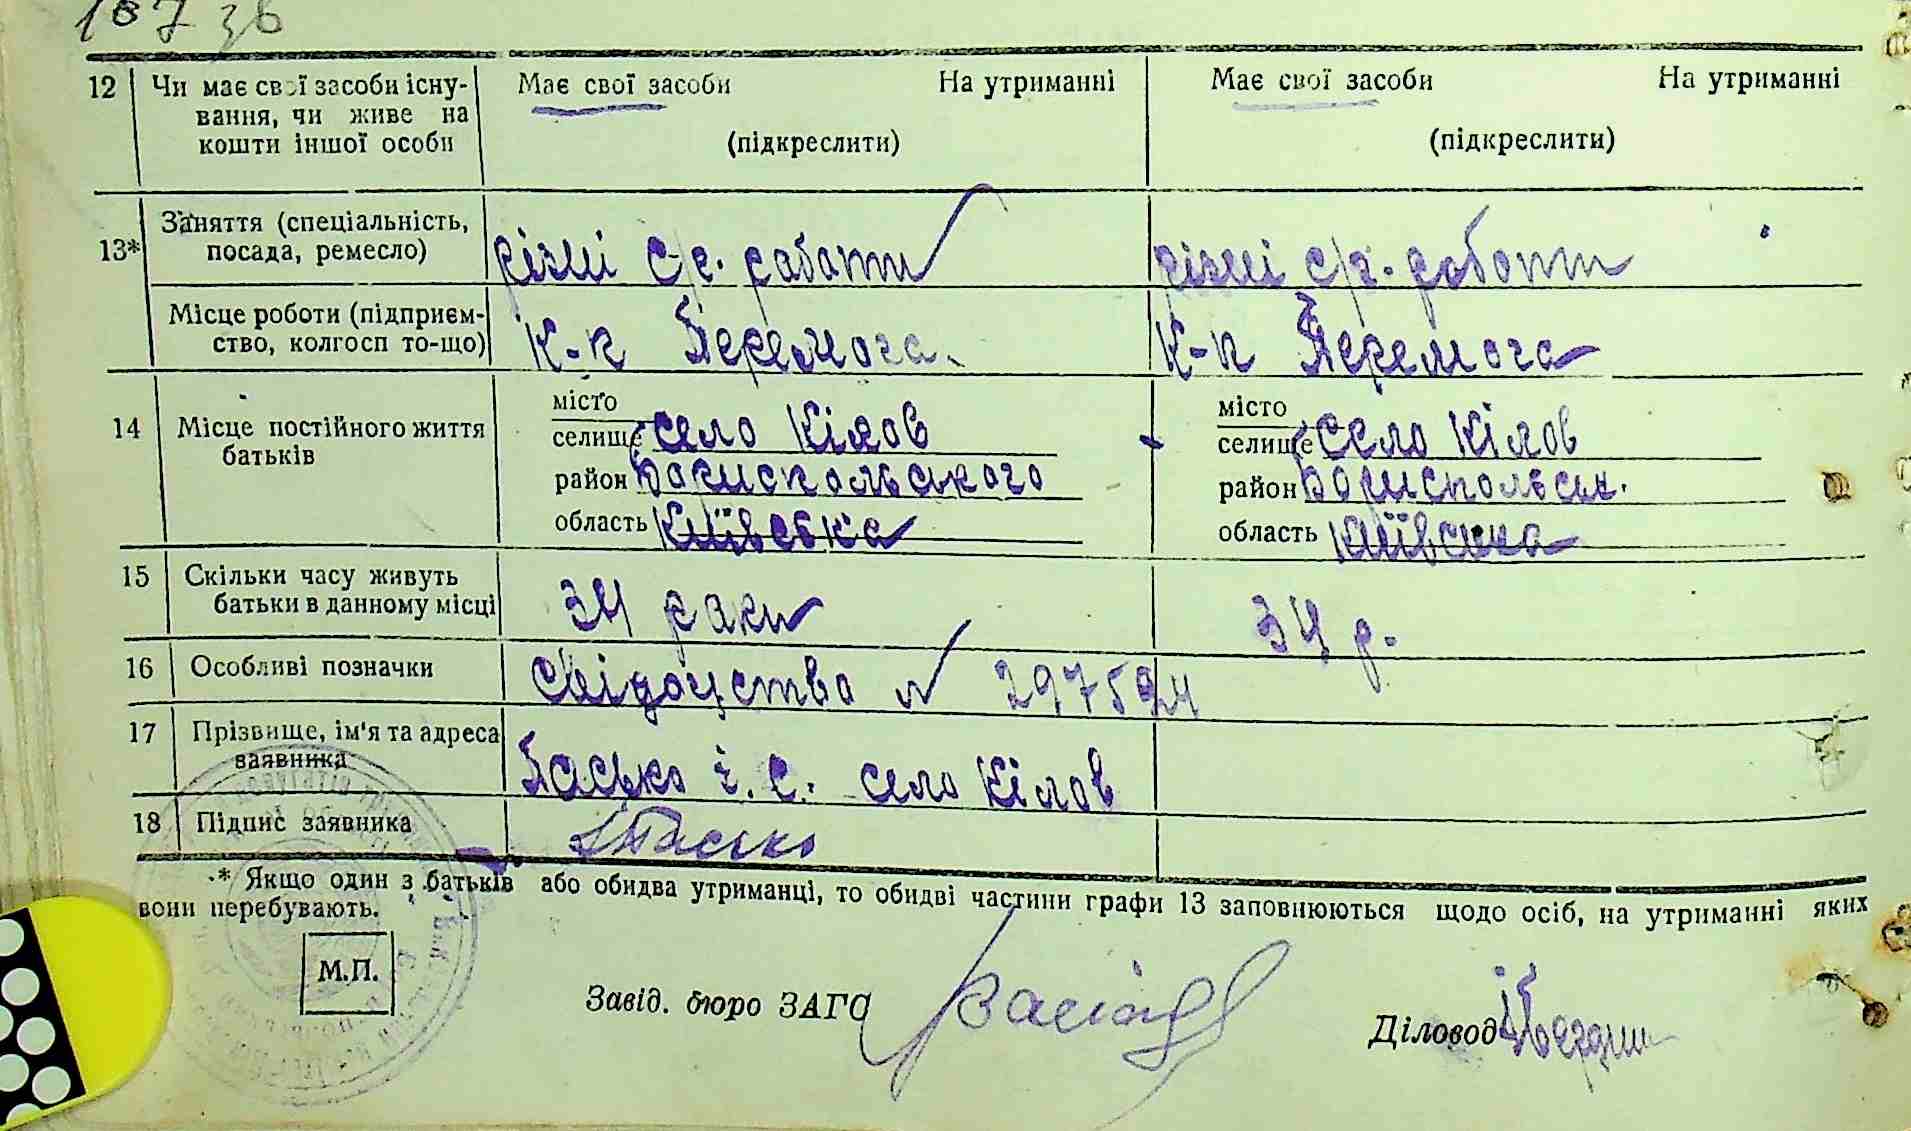 187 зв
12 Чи має свої засоби існу- Має свої засоби На утриманні Має свої засоби На утриманні
вання, чи живе на
кошти іншої особи (підкреслити) (підкреслити)
13* Заняття (спеціальність, посада, ремесло) різні с/г. работи різні с/г. роботи
Місце роботи (підприєм-
ство, колгосп то-що) К-п Перемога. К-п Перемога
14 Місце постійного життя батьків
місто місто
селище село Кілов селище село Кілов
район Бориспольського район Бориспольськ.
область Київська область Київська
15 Скільки часу живуть
батьки в данному місці 34 роки 34 р.
16 Особливі позначки Свідоцтво N 297594
17 Прізвище, ім'я та адреса
заявника Пасько І. С. село Кілов
18 Підпис заявника Пасько
* Якщо один з батьків або обидва утриманці, то обидві частини графи 13 заповнюються щодо осіб, на утриманні яких
вони перебувають.
М.П.
Завід. бюро ЗАГС
Діловод